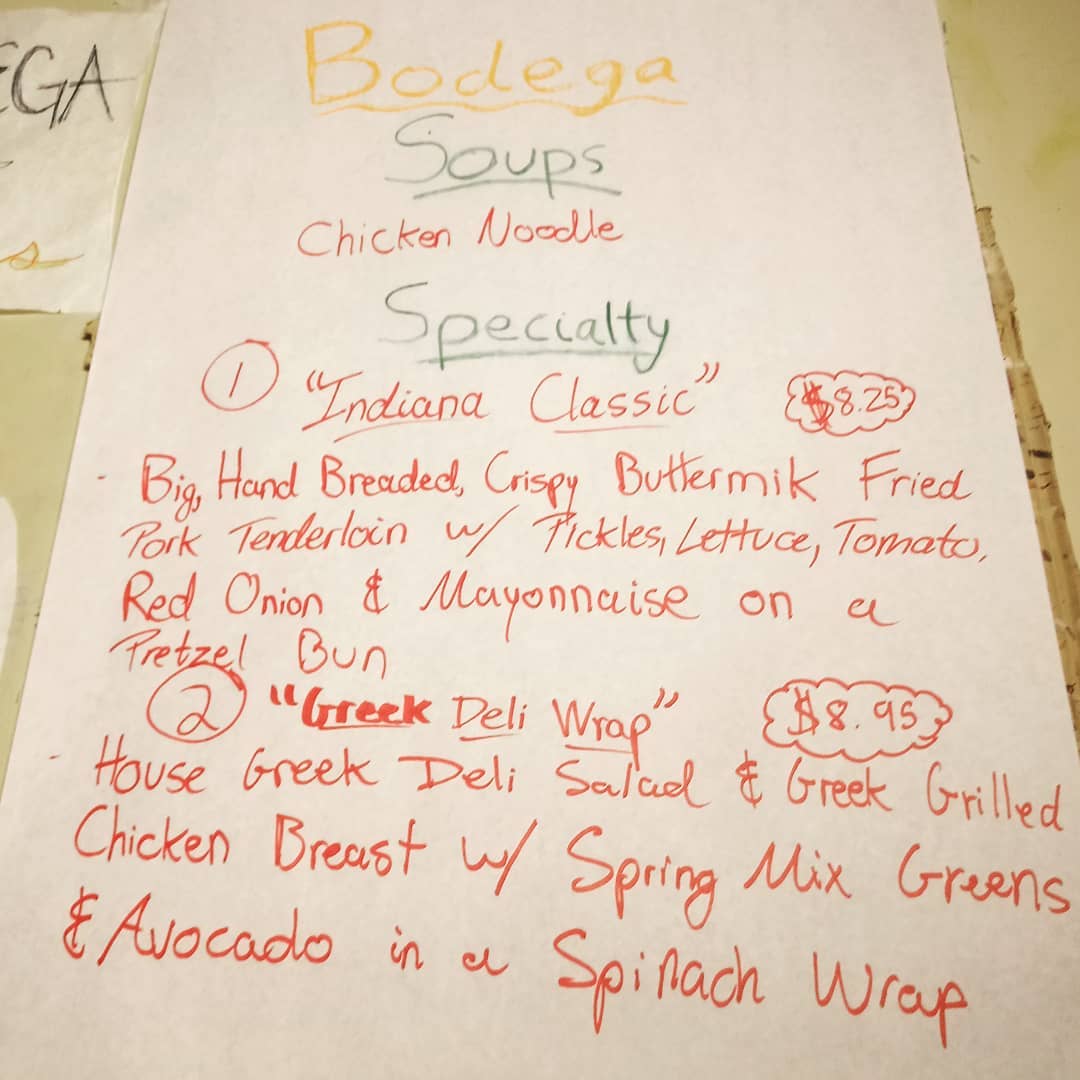 EGA
s
Bodega
Soups
Chicken Noodle
Specialty
1 "Indiana Classic" $8.25
- Big, Hand Breaded, Crispy Buttermik Fried
Pork Tenderloin w/ Pickles, Lettuce, Tomato,
Red Onion & Mayonnaise on a
Pretzel Bun
2 "Greek Deli Wrap" $8.95
- House Greek Deli Salad & Greek Grilled
Chicken Breast w/ Spring Mix Greens
& Avocado in a Spinach Wrap